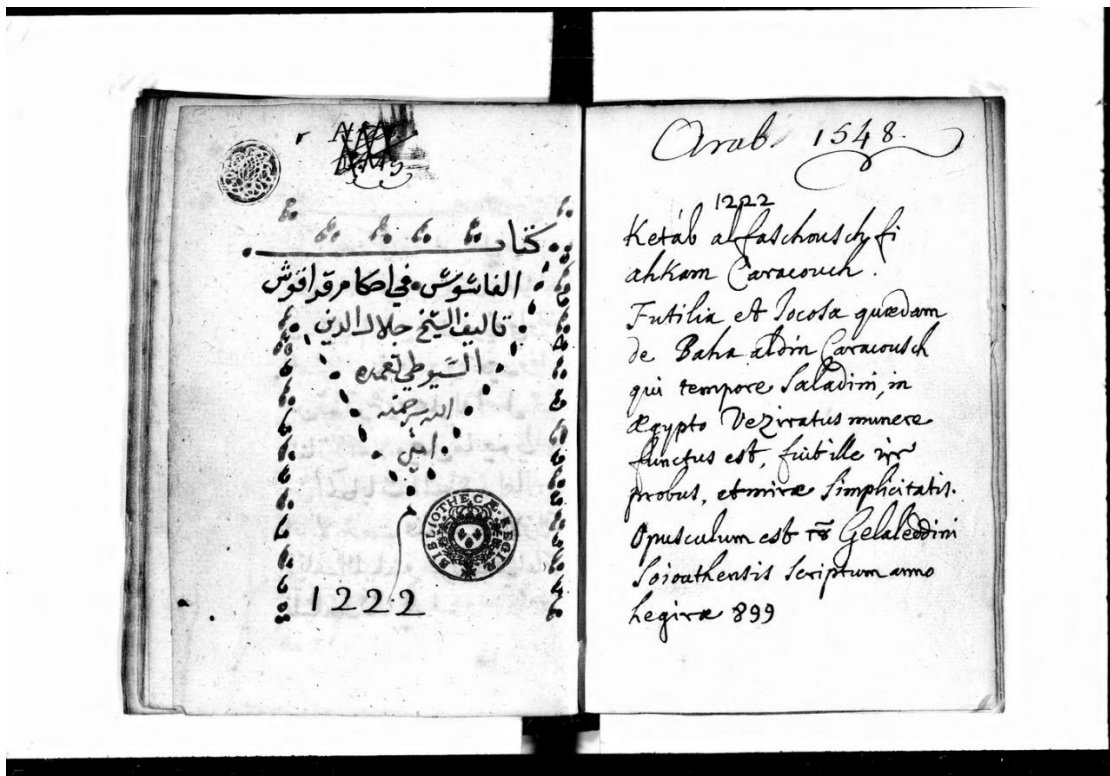 كتاب
الفاشوش في احكام قراقوش
تاليف الشيخ جلال الدين
السيوطي تغمده
الله برحمته
امين
BIBLIOTHECÆ REGIÆ
1222
Arab. 1548.
1222
Ketab alfaschousch fi
ahkam Caracouch.
Futilia et Jocosa quædam
de Baha aldin Caracousch
qui tempore Saladini, in
Ægypto Veziratus munere
functus est, fuit ille vir
probus, et miræ simplicitatis.
Opusculum est Gelaleddini
Soiouthensis scriptum anno
hegiræ 899